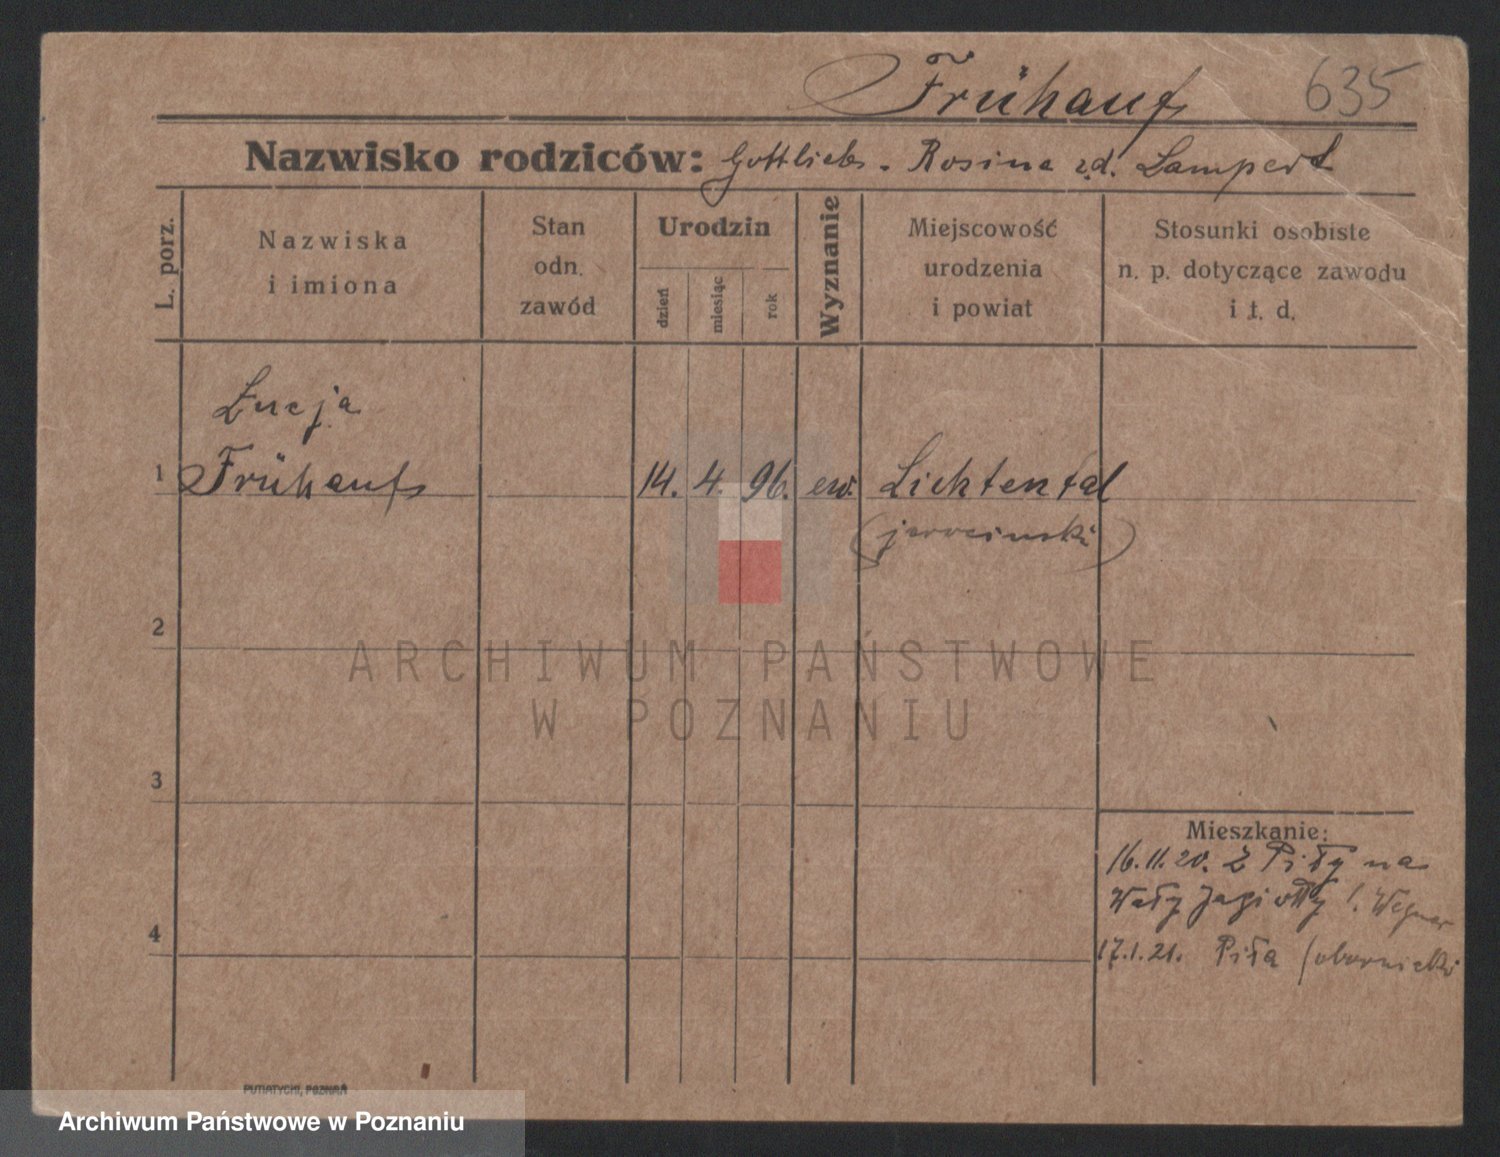 Frühauf 635
Nazwisko rodziców: Gottlieb - Rosina z.d. Lampert
L. porz.
Nazwiska
i imiona
Stan
odn.
zawód
Urodzin
dzień
miesiąc
rok
Wyznanie
Miejscowość
urodzenia
i powiat
Stosunki osobiste
n. p. dotyczące zawodu
i t. d.
Łucja
1 Frühauf 14. 4. 96. ew. Lichtental
(jarocinski)
2
ARCHIWUM PAŃSTWOWE
W POZNANIU
3
Mieszkanie:
16.11.20. Z Piły na
Wały Jagiełły /. Wegner
4
17.1.21. Piła (obornicki
PUTIATYCKI, POZNAŃ
Archiwum Państwowe w Poznaniu